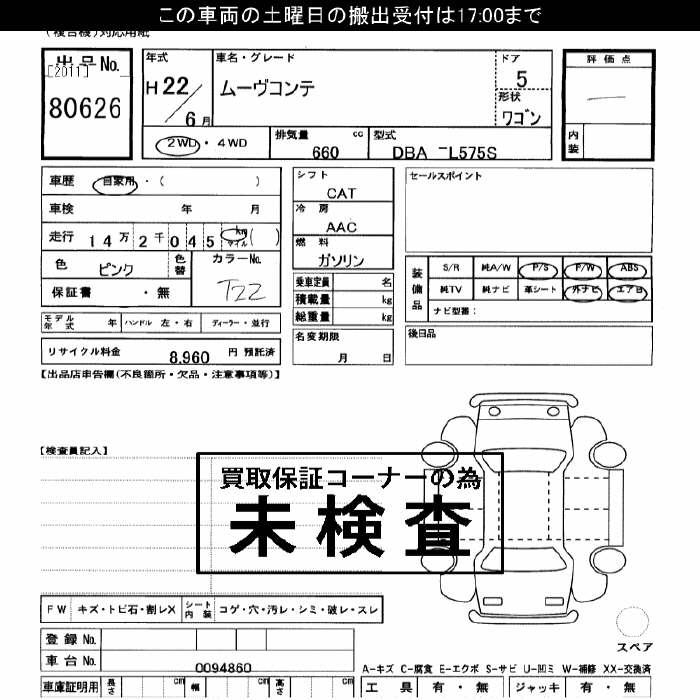 この車両の土曜日の搬出受付は17:00まで
(複合機)対応用紙
出品No.
[2011]
80626
年式
H22/6月
車名・グレード
ムーヴコンテ
ドア
5
形状
ワゴン
評価点
内装
2WD・4WD
排気量 cc
660
型式
DBA -L575S
車歴 自家用・( )
車検 年 月
走行 14万2千045 km マイル ( )
色 ピンク
色替
カラーNo.
T22
保証書 ・無
シフト
CAT
冷房
AAC
燃料
ガソリン
乗車定員 名
積載量 kg
総重量 kg
名変期限
月 日
セールスポイント
装備品
S/R 純A/W P/S P/W ABS
純TV 純ナビ 革シート 外ナビ エアB
ナビ型番:
後日品
モデル年式 年 ハンドル 左・右 ディーラー・並行
リサイクル料金 8,960 円 預託済
【出品店申告欄(不良箇所・欠品・注意事項等)】
【検査員記入】
買取保証コーナーの為
未検査
FW キズ・トビ石・割レX シート内装 コゲ・穴・汚レ・シミ・破レ・スレ
登録No.
車台No. 0094860
スペア
A-キズ C-腐食 E-エクボ S-サビ U-凹ミ W-補修 XX-交換済
車庫証明用 長さ cm 幅 cm 高さ cm
工具 有・無 ジャッキ 有・無